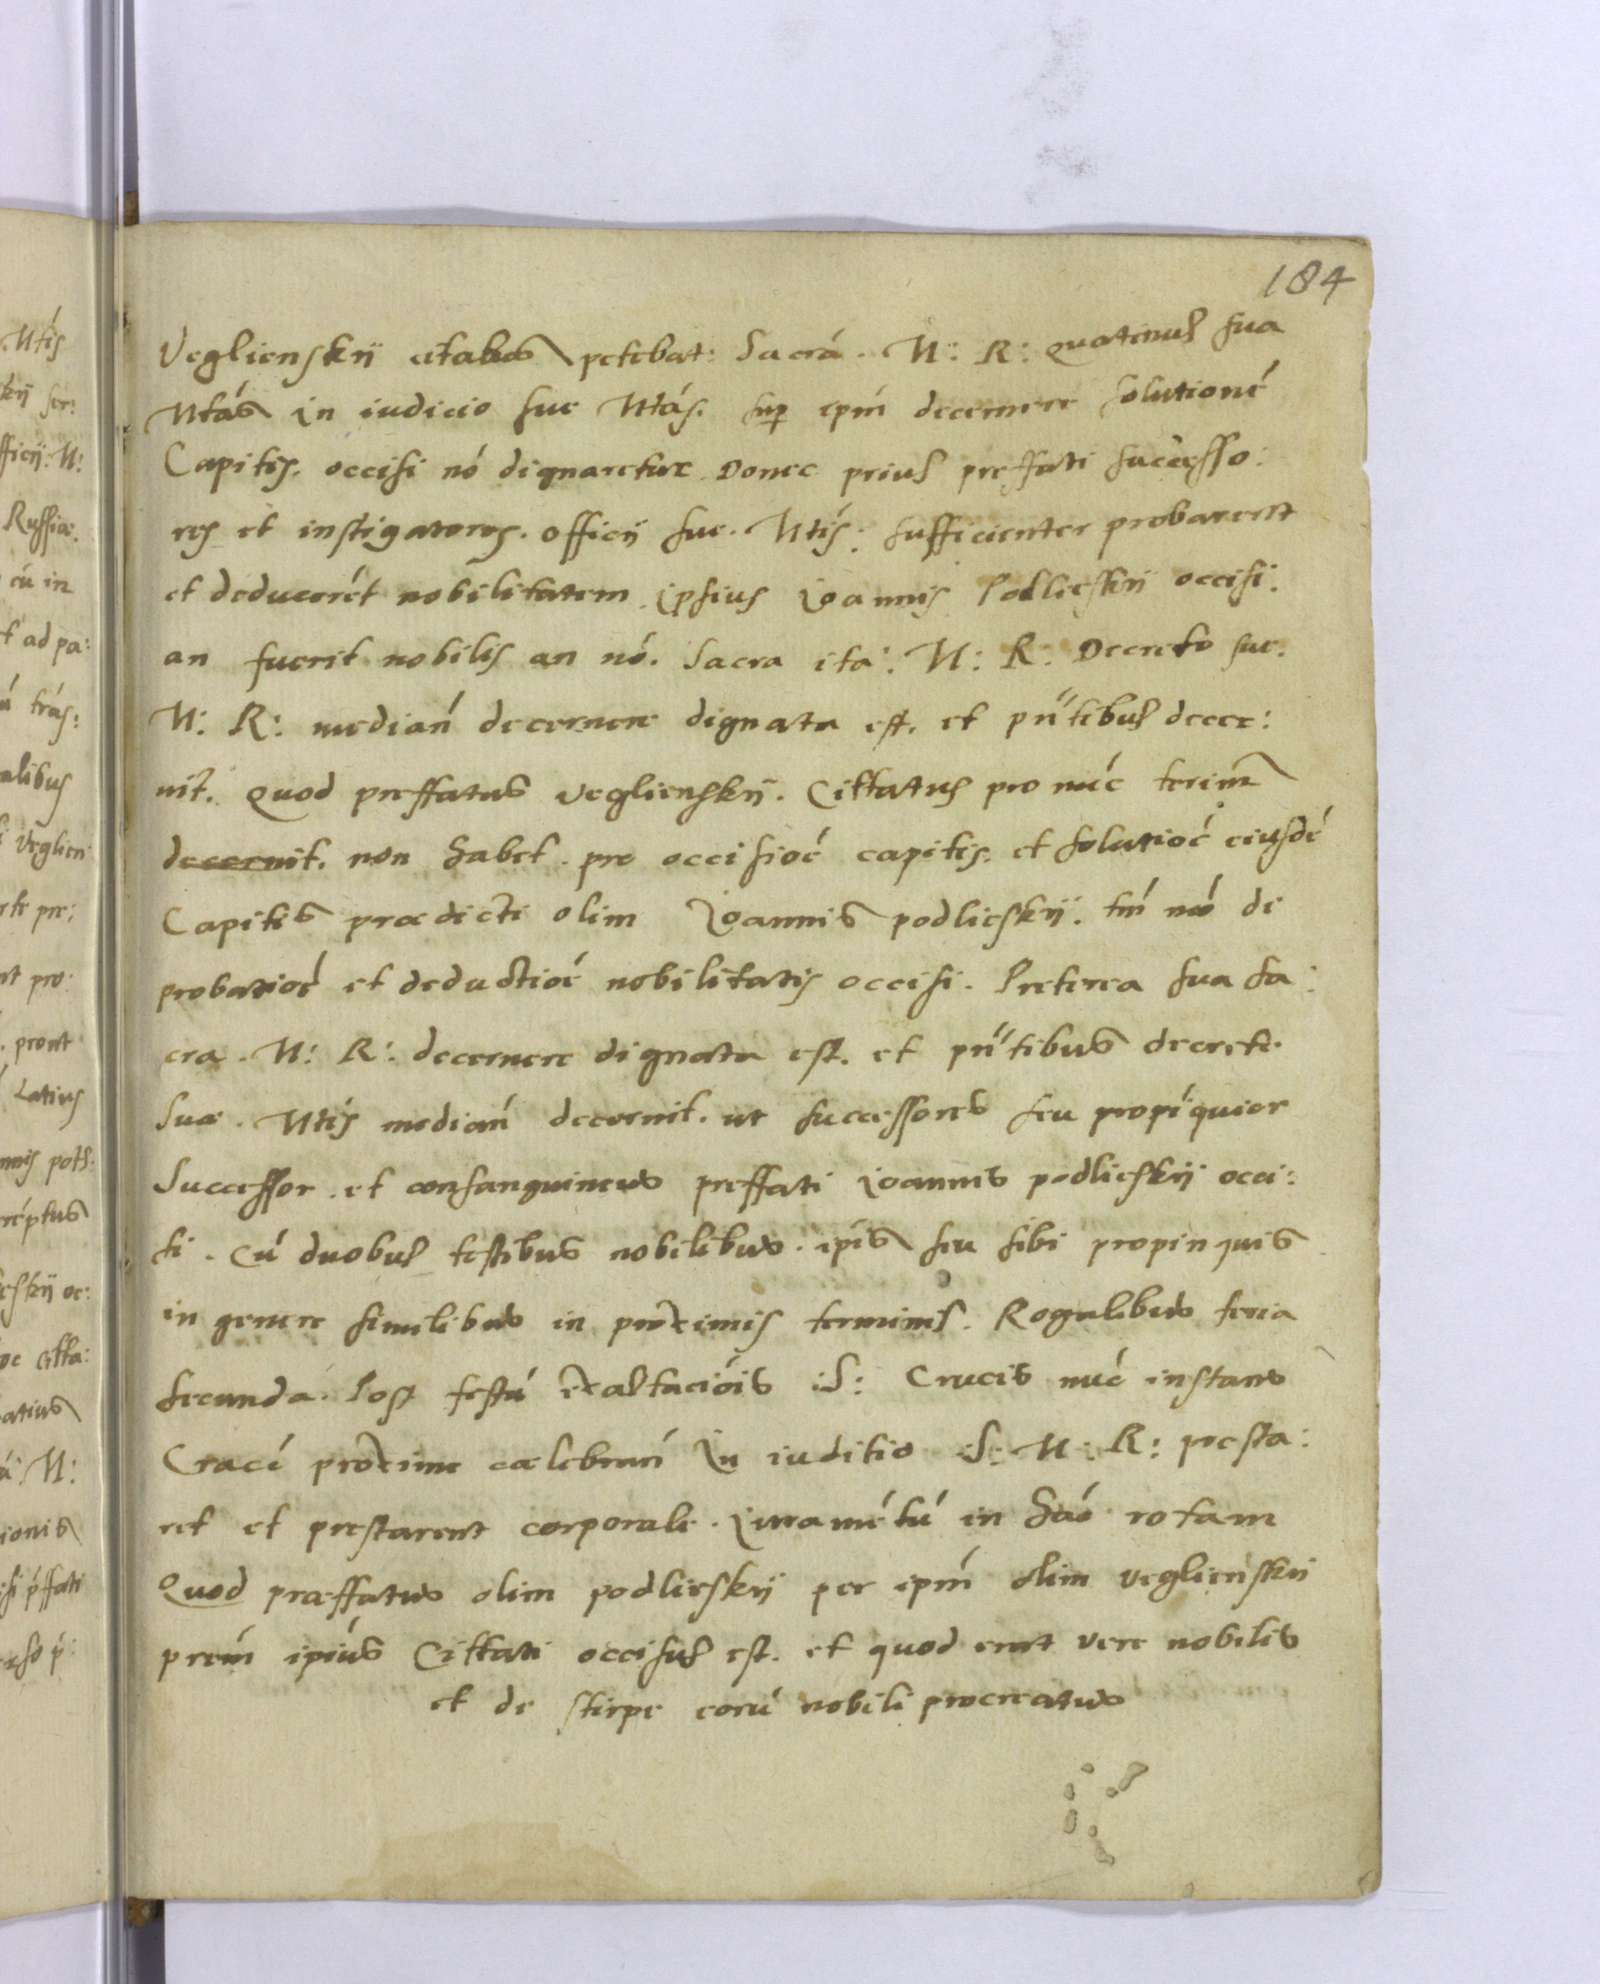 184
Veglienskÿ citatus petebat: Sacrá. M: R: quatenus sua
Mtás in iudicio sue Mtás. sup ipm̄ decernere solutioné
Capitis. occisi nó dignaretur Donec prius preffati successo:
res et instigatores. officÿ sue. Mtis: sufficienter probarent
et deducerét nobilitatem ipsius Joannis Podlieskÿ occisi:
an fuerit nobilis an nó. Sacra ita: M: R: Decreto sue:
M: R: median̄ decernere dignata est. et pn̄tibus decer:
nit. Quod preffatus Veglienskÿ. Cittatus pro núc terim̄
decernit. non habet. pro occisioé capitis. et solutioé eiusdé
Capitis praedicti olim Joannis podlieskÿ. tm̄ nó de
probatioé et deductioé nobilitatis occisi. Preterea sua sa:
cra. M: R: decernere dignata est. et pn̄tibus decreto
Suae. Mtis median̄ decernit. ut successores seu propiquior
Successor. et consanguineus preffati Joannis podlieskÿ occi:
si. Cú duobus testibus nobilibus. ipis seu sibi propinquis
in genere similibus in proximis terminis. Regalibus feria
secunda. Post festú exaltaciois :S: Crucis núc instans
Craci proxime caelebran̄ In iuditio :S: M: R: presta:
ret et prestarent corporale. Juramétú in hác rotam
Quod praeffatus olim podlieskÿ per ipm̄ olim Veglienskii
prem̄ ipius Cittati occisus est. et quod erat vere nobilis
et de stirpe eorú nobili procreatus